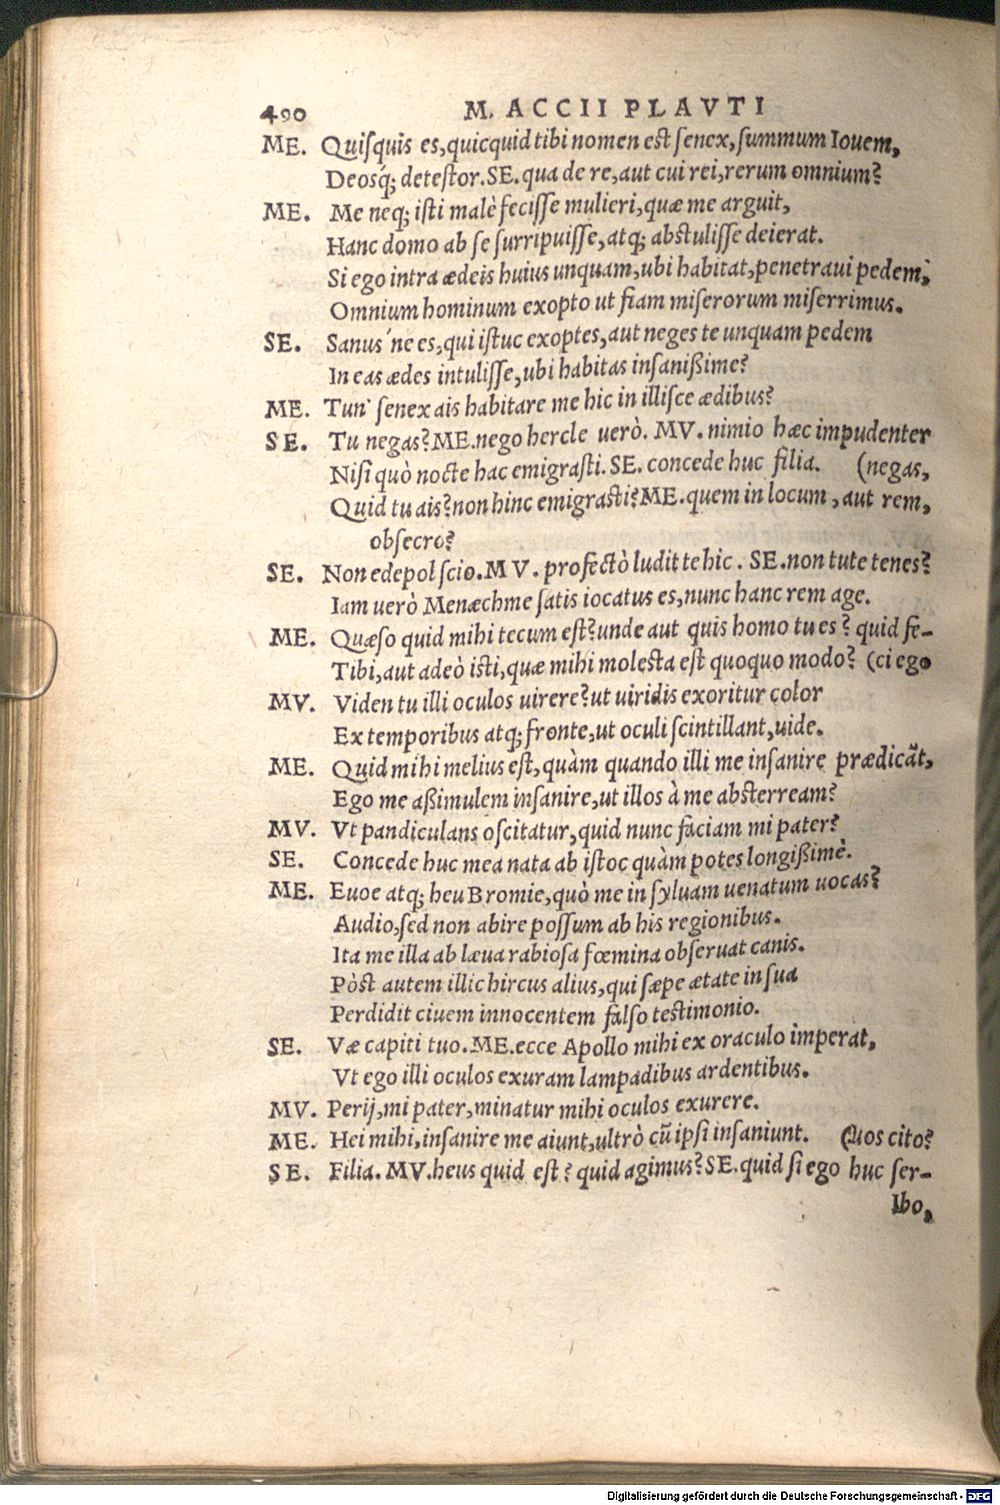 490 M. ACCII PLAVTI
ME. Quiſquis es,quicquid tibi nomen est ſenex,ſummum Iouem,
Deosq́; deteſtor.SE.qua de re,aut cui rei,rerum omnium?
ME. Me neq; iſti malè feciſſe mulieri,quæ me arguit,
Hanc domo ab ſe ſurripuiſſe,atq; abſtuliſſe deierat.
Si ego intra ædeis huius unquam,ubi habitat,penetraui pedem,
Omnium hominum exopto ut fiam miſerorum miſerrimus.
SE. Sanus'ne es,qui iſtuc exoptes,aut neges te unquam pedem
In eas ædes intuliſſe,ubi habitas inſanißime?
ME. Tun' ſenex ais habitare me hic in illiſce ædibus?
SE. Tu negas?ME.nego hercle uerò. MV. nimio hæc impudenter
Niſi quò nocte hac emigraſti.SE. concede huc filia. (negas,
Quid tu ais?non hinc emigraſti?ME.quem in locum, aut rem,
obſecro?
SE. Non edepol ſcio.MV. profectò ludit te hic. SE.non tute tenes?
Iam uerò Menæchme ſatis iocatus es,nunc hanc rem age.
ME. Quæſo quid mihi tecum eſt?unde aut quis homo tu es? quid fe-
Tibi,aut adeò iſti,quæ mihi moleſta eſt quoquo modo? (ci ego
MV. Viden tu illi oculos uirere?ut uiridis exoritur color
Ex temporibus atq; fronte,ut oculi ſcintillant,uide.
ME. Quid mihi melius eſt,quàm quando illi me inſanire prædicãt,
Ego me aßimulem inſanire,ut illos à me abſterream?
MV. Vt pandiculans oſcitatur,quid nunc faciam mi pater?
SE. Concede huc mea nata ab iſtoc quàm potes longißimè.
ME. Euoe atq; heu Bromie,quò me in ſyluam uenatum uocas?
Audio,ſed non abire poſſum ab his regionibus.
Ita me illa ab læua rabioſa fœmina obſeruat canis.
Pòſt autem illic hircus alius,qui ſæpe ætate in ſua
Perdidit ciuem innocentem falſo teſtimonio.
SE. Væ capiti tuo.ME.ecce Apollo mihi ex oraculo imperat,
Vt ego illi oculos exuram lampadibus ardentibus.
MV. Perij,mi pater,minatur mihi oculos exurere.
ME. Hei mihi,inſanire me aiunt,ultrò cũ ipſi inſaniunt. (uos cito?
SE. Filia. MV.heus quid eſt? quid agimus?SE.quid ſi ego huc ſer-
Ibo,
Digitalisierung gefördert durch die Deutsche Forschungsgemeinschaft - DFG